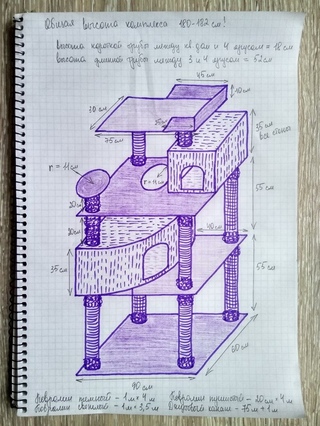 Общая высота комплекса 180-182 см!
высота короткой трубы между кв. дна и 4 ярусом = 18 см
высота длинной трубы между 3 и 4 ярусом = 52 см
45 см
10 см
50 см
75 см
35 см
все стенки
r = 11 см
r = 11 см
55 см
20 см
20 см
40 см
35 см
55 см
60 см
90 см
Ковролин темный - 1 м × 4 м
Ковролин пушистый - 20 см × 4 м
Ковролин светлый - 1 м × 3,5 м
Джутовый канат - 75 м + 1 м